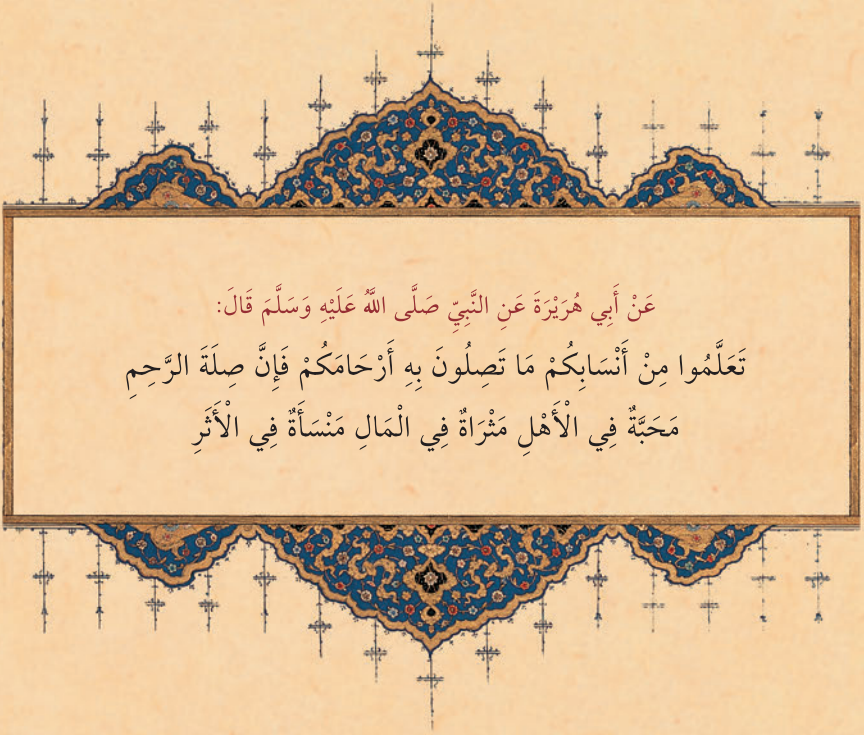 عَنْ أَبِي هُرَيْرَةَ عَنِ النَّبِيِّ صَلَّى اللَّهُ عَلَيْهِ وَسَلَّمَ قَالَ:
تَعَلَّمُوا مِنْ أَنْسَابِكُمْ مَا تَصِلُونَ بِهِ أَرْحَامَكُمْ فَإِنَّ صِلَةَ الرَّحِمِ
مَحَبَّةٌ فِي الْأَهْلِ مَثْرَاةٌ فِي الْمَالِ مَنْسَأَةٌ فِي الْأَثَرِ